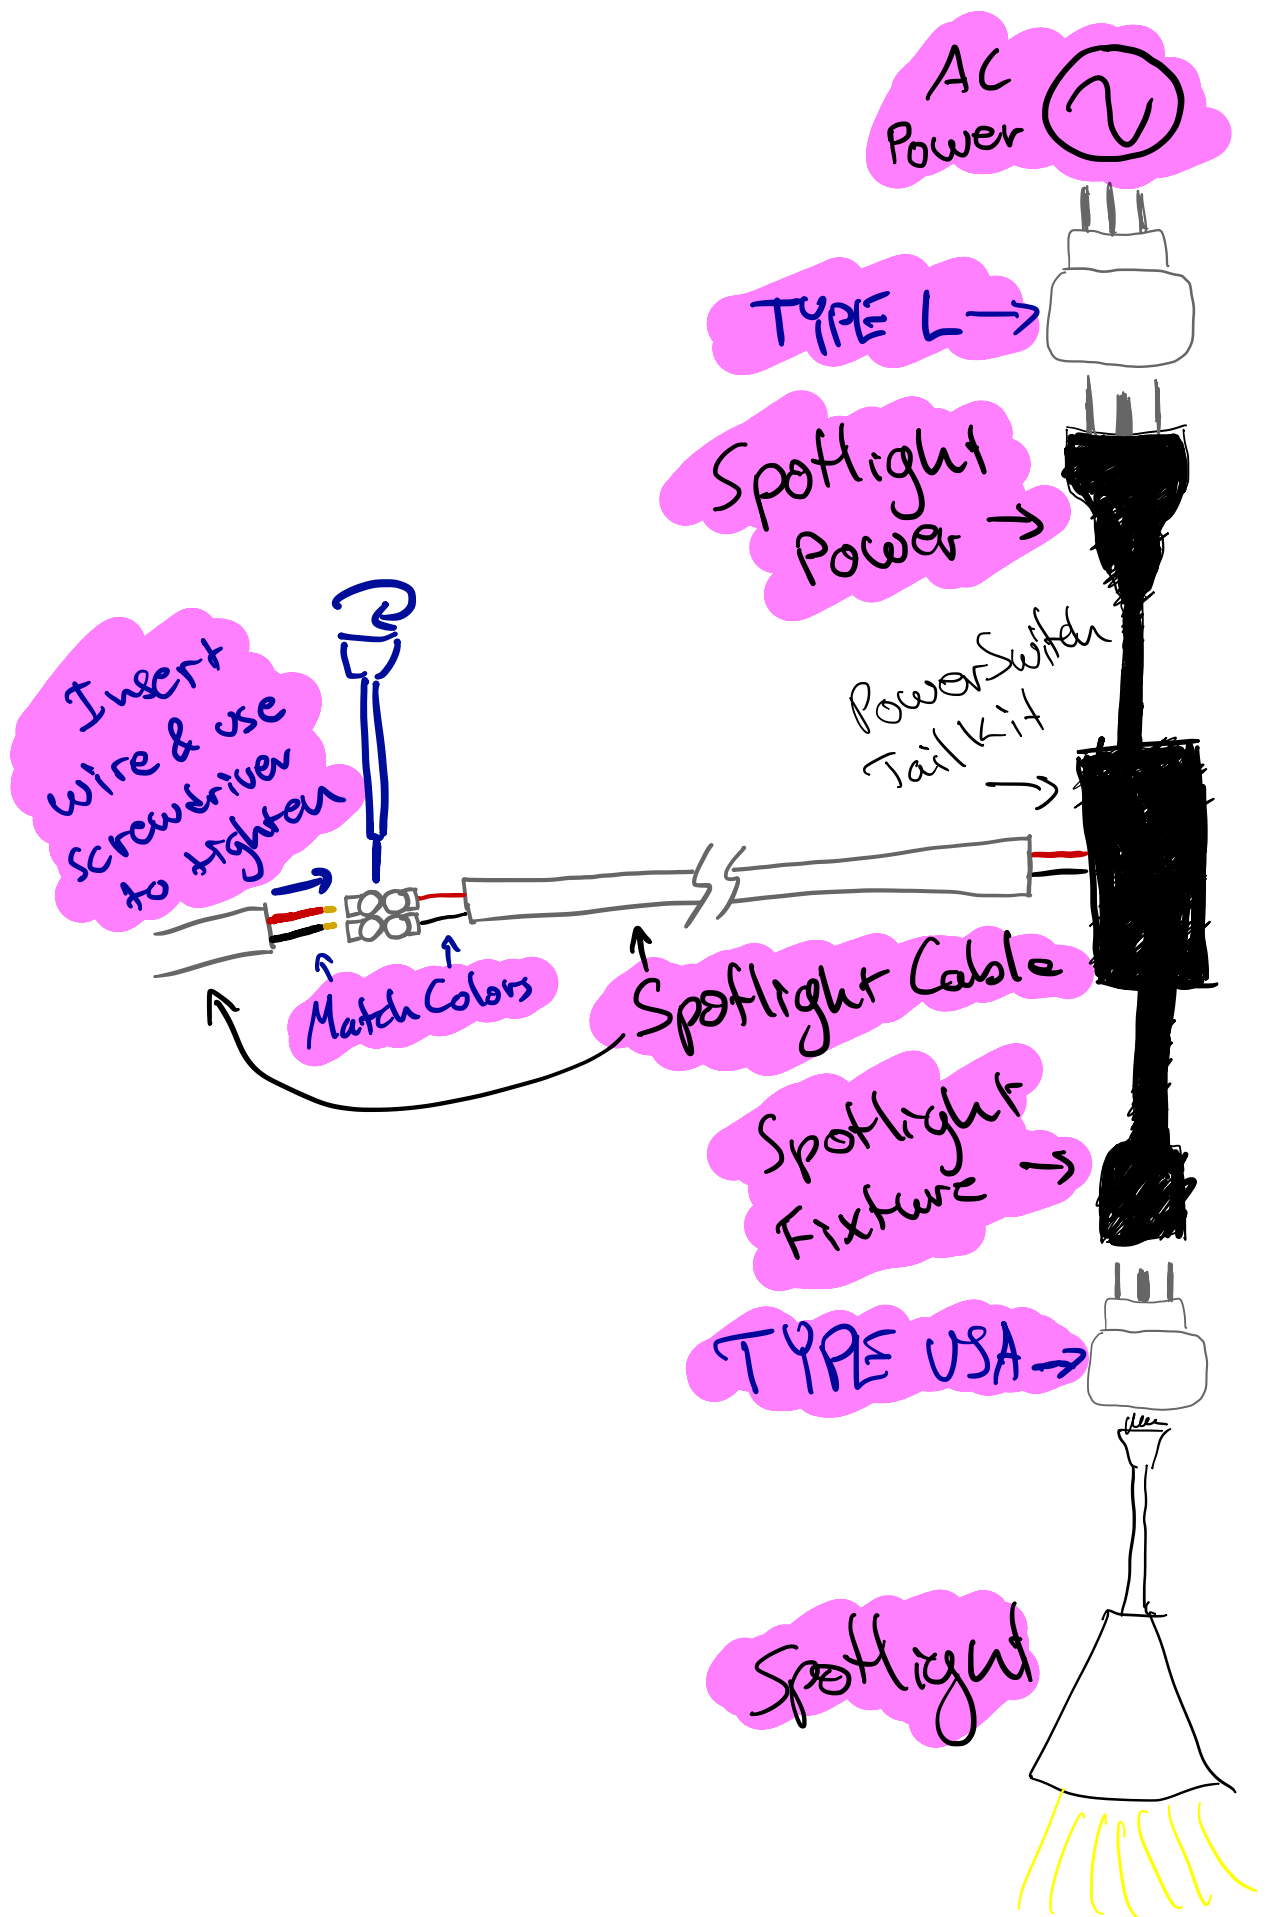 AC
Power
TYPE L
Spotlight
Power
PowerSwitch
Tail Kit
Insert
wire & use
screwdriver
to tighten
Match Colors
Spotlight Cable
Spotlight
Fixture
TYPE USA
Spotlight